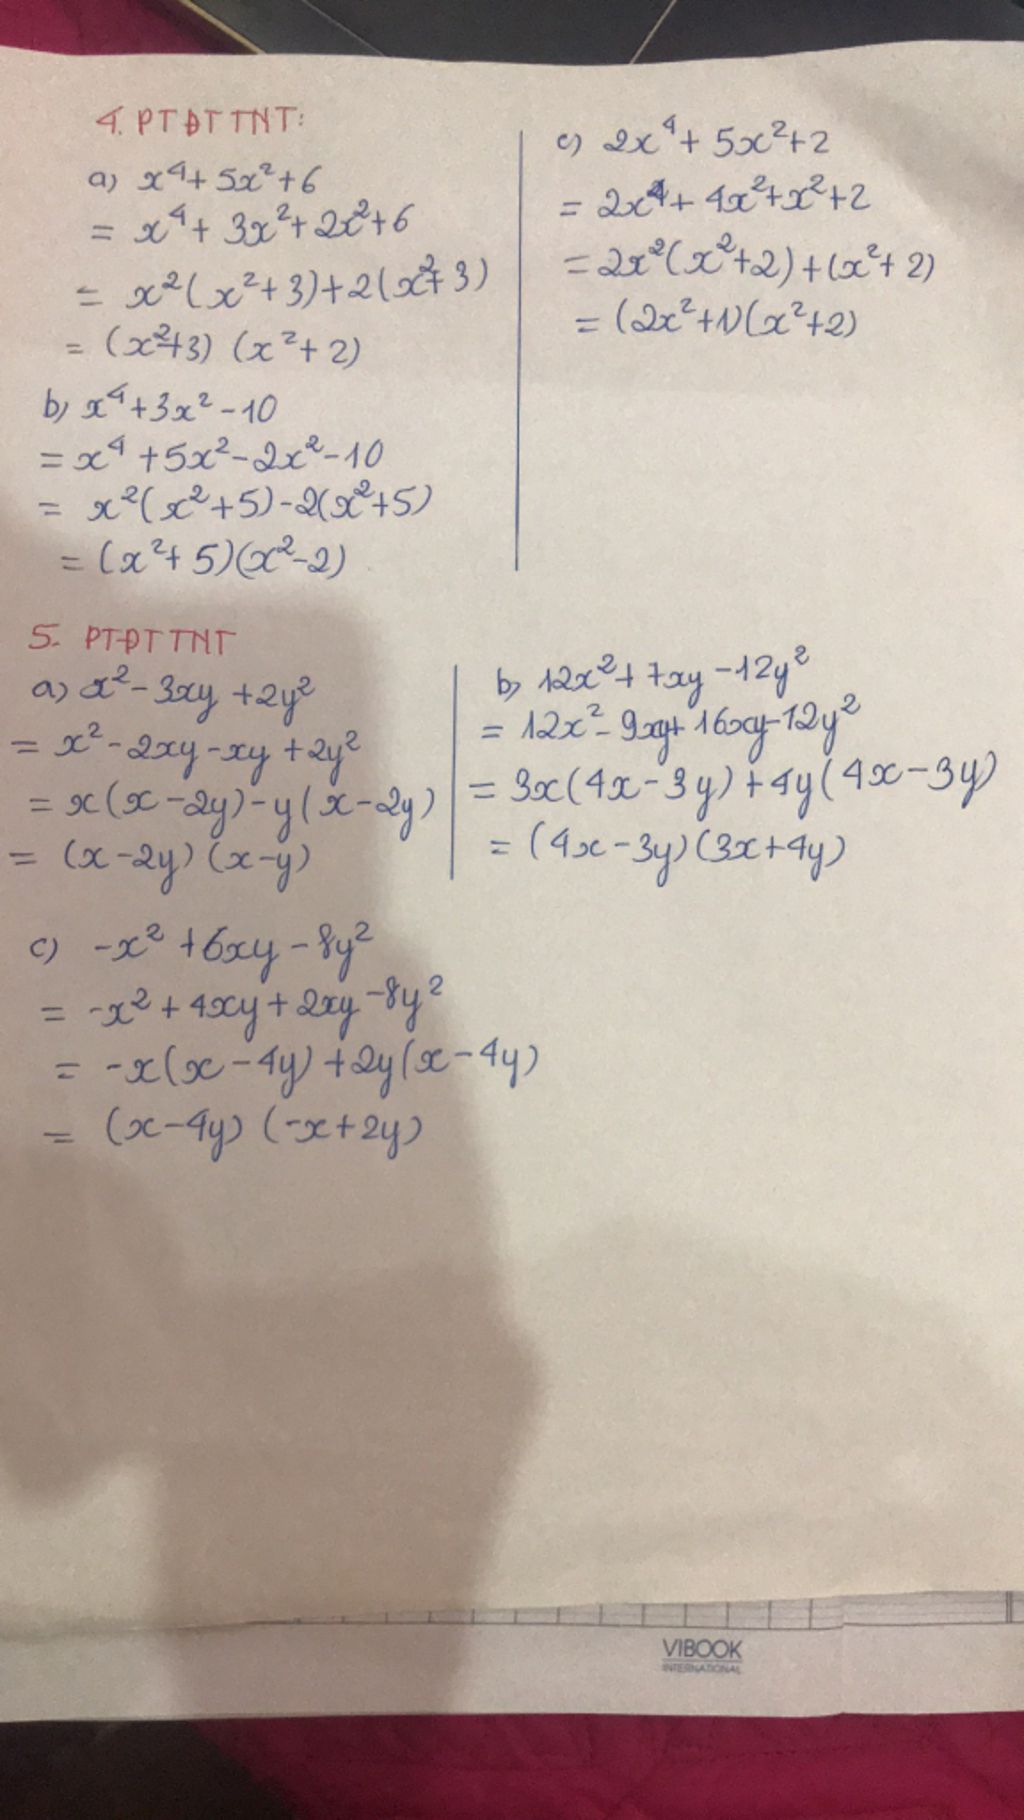 4. PTĐTTNT:
a) x⁴ + 5x² + 6
= x⁴ + 3x² + 2x² + 6
= x²(x² + 3) + 2(x² + 3)
= (x² + 3) (x² + 2)
b) x⁴ + 3x² - 10
= x⁴ + 5x² - 2x² - 10
= x²(x² + 5) - 2(x² + 5)
= (x² + 5)(x² - 2)
c) 2x⁴ + 5x² + 2
= 2x⁴ + 4x² + x² + 2
= 2x²(x² + 2) + (x² + 2)
= (2x² + 1)(x² + 2)
5. PTĐTTNT
a) x² - 3xy + 2y²
= x² - 2xy - xy + 2y²
= x(x - 2y) - y(x - 2y)
= (x - 2y) (x - y)
b) 12x² + 7xy - 12y²
= 12x² - 9xy + 16xy - 12y²
= 3x(4x - 3y) + 4y(4x - 3y)
= (4x - 3y)(3x + 4y)
c) -x² + 6xy - 8y²
= -x² + 4xy + 2xy - 8y²
= -x(x - 4y) + 2y(x - 4y)
= (x - 4y) (-x + 2y)
VIBOOK
INTERNATIONAL